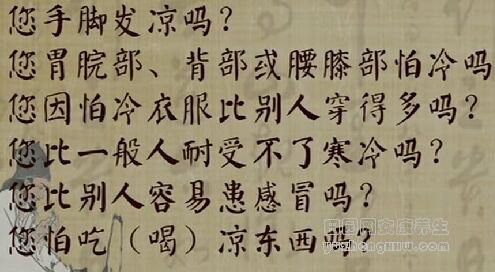 您手脚发凉吗？
您胃脘部、背部或腰膝部怕冷吗
您因怕冷衣服比别人穿得多吗？
您比一般人耐受不了寒冷吗？
您比别人容易患感冒吗？
您怕吃（喝）凉东西吗？